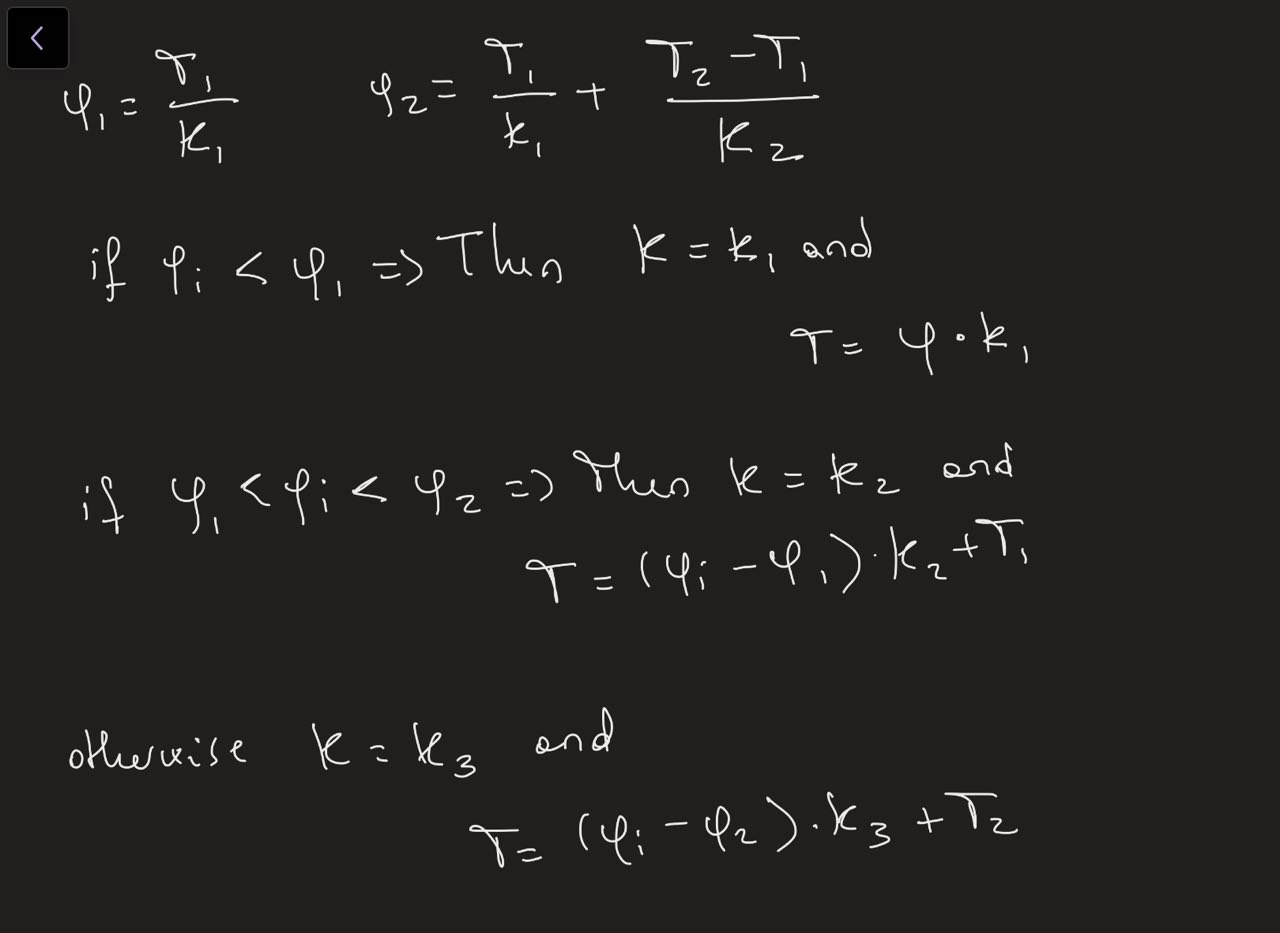 φ₁ = T₁/K₁    φ₂ = T₁/k₁ + (T₂ − T₁)/K₂
if φi < φ₁ => Then K = k₁ and
T = φ · k₁
if φ₁ < φi < φ₂ => Then k = k₂ and
T = (φi − φ₁) · k₂ + T₁
otherwise k = k₃ and
T = (φi − φ₂) · k₃ + T₂